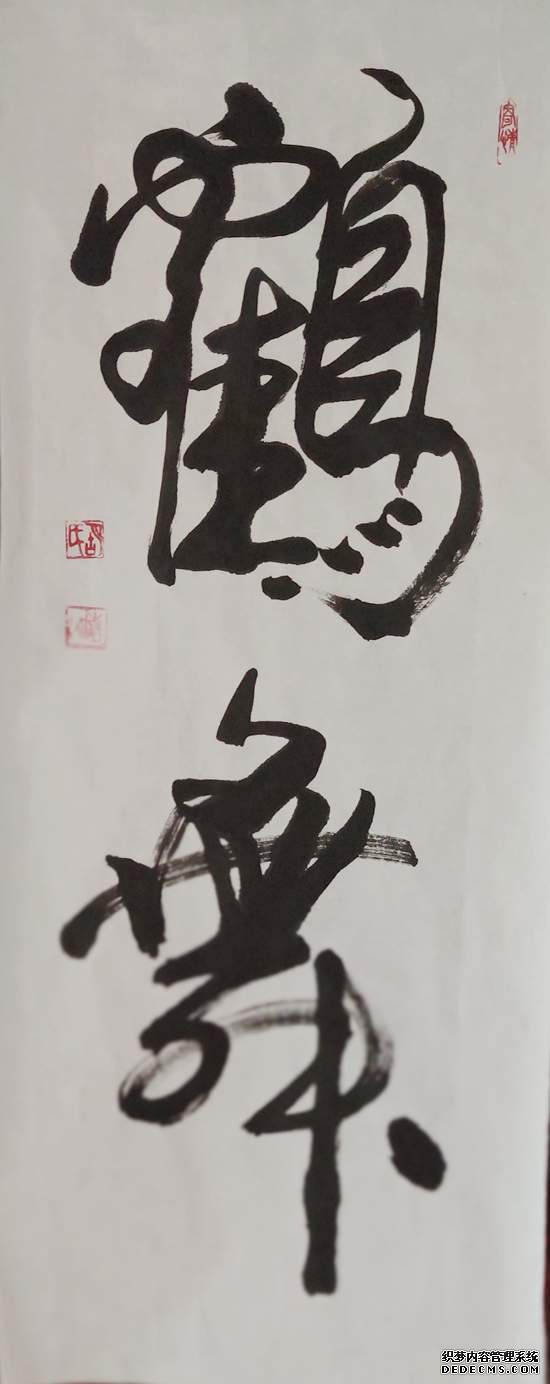 鶴
舞
织梦内容管理系统
DEDECMS.COM